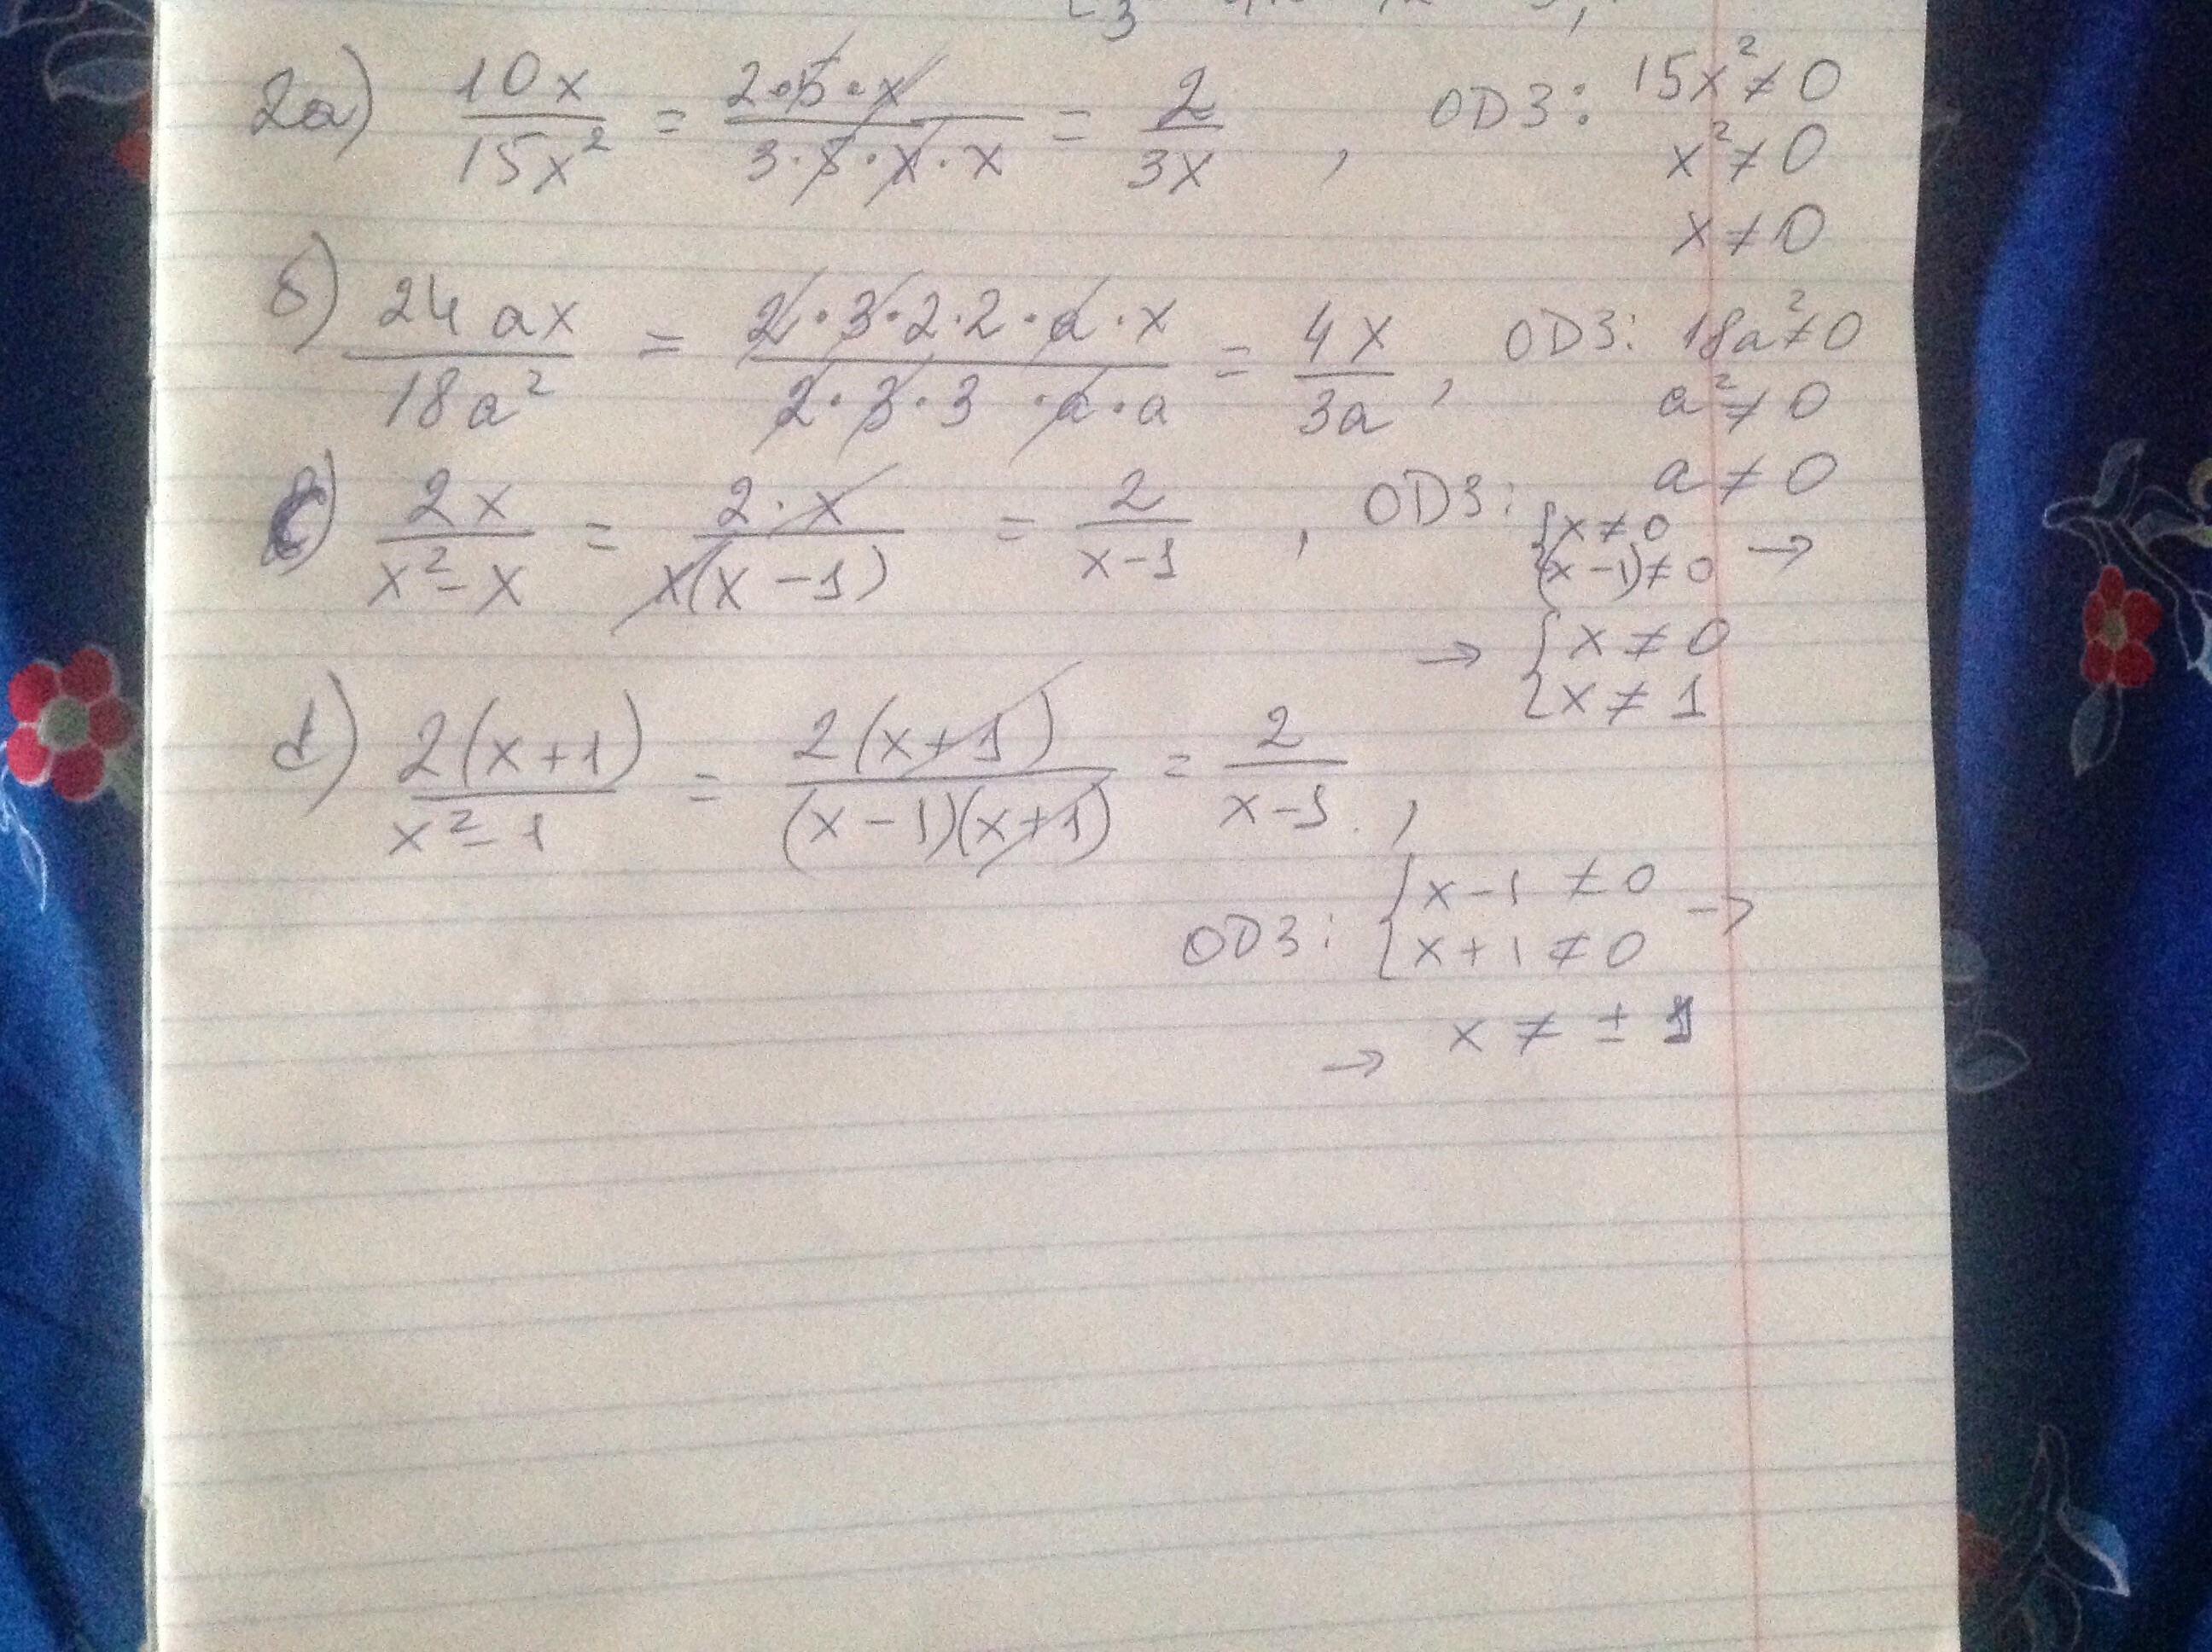 2a) 10x/15x² = 2·5·x/3·5·x·x = 2/3x , ОДЗ: 15x² ≠ 0
x² ≠ 0
x ≠ 0
б) 24ax/18a² = 2·3·2·2·a·x/2·3·3·a·a = 4x/3a , ОДЗ: 18a² ≠ 0
a² ≠ 0
a ≠ 0
c) 2x/x²-x = 2·x/x(x-1) = 2/x-1 , ОДЗ: { x ≠ 0
(x-1) ≠ 0 →
→ { x ≠ 0
x ≠ 1
d) 2(x+1)/x²-1 = 2(x+1)/(x-1)(x+1) = 2/x-1 ,
ОДЗ: { x-1 ≠ 0
x+1 ≠ 0 →
→ x ≠ ± 1